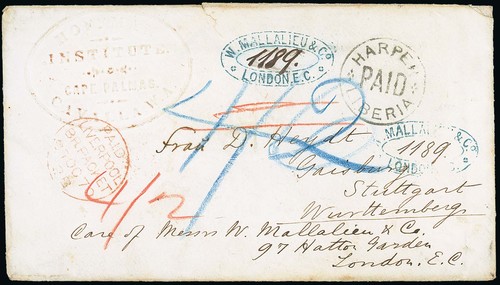 INSTITUTE
CAPE PALMAS
W. MALLALIEU & Co
1189.
LONDON, E.C.
HARPER
PAID
LIBERIA
MALLALIEU & Co
1189.
LONDON
4/2
PAID
LIVERPOOL
Frau D. Heydt
Gaisburg
Stuttgart
Wurttemberg
Care of Messrs W. Mallalieu & Co.
97 Hatton Garden
London. E.C.